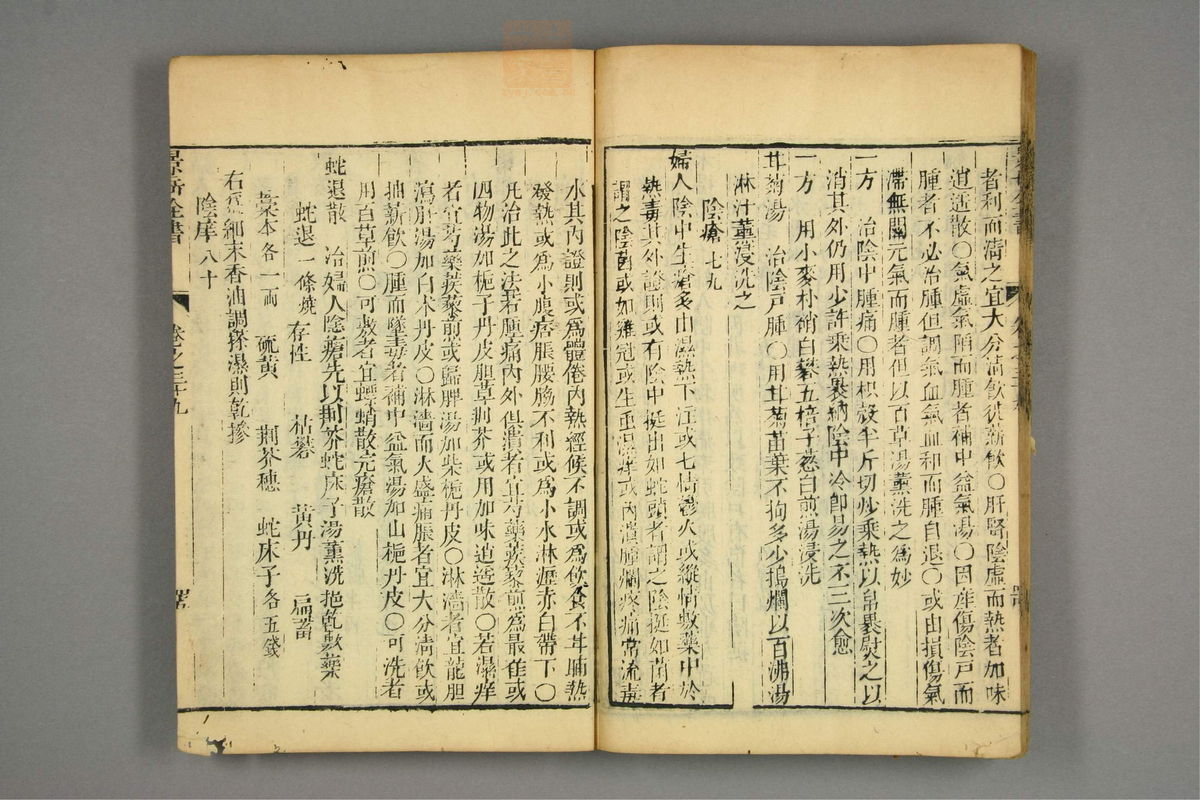 者利而清之宜大分清飲徙薪飲〇肝腎陰虛而熱者加味
逍遙散〇氣虛氣陷而腫者補中益氣湯〇因產傷陰戸而
腫者不必治腫但調氣血氣血和而腫自退〇或由損傷氣
滯無關元氣而腫者但以百草湯薰洗之為妙
一方 治陰中腫痛〇用枳殼半斤切炒乘熱以帛裹熨之以
消其外仍用少許乘熱裹納陰中冷卽易之不三次愈
一方 用小麥朴硝白礬五棓子葱白煎湯浸洗
甘菊湯 治陰戸腫〇用甘菊苗葉不拘多少搗爛以百沸湯
淋汁薰浸洗之
陰瘡 七九
婦人陰中生瘡多由濕熱下注或七情鬱火或縱情敷藥中於
熱毒其外證則或有陰中挺出如蛇頭者謂之陰挺如菌者
謂之陰菌或如雞冠或生重濕痒或內潰腫爛疼痛常流毒
水其內證則或爲體倦內熱經候不調或為飲食不甘晡熱
發熱或為小腹痞脹腰脇不利或為小水淋瀝赤白帶下〇
凡治此之法若腫痛內外俱潰者宜芍藥蒺藜煎爲最佳或
四物湯加梔子丹皮胆草荆芥或用加味逍遙散〇若濕痒
者宜芍藥蒺藜煎或歸脾湯加柴梔丹皮〇淋濇者宜龍胆
瀉肝湯加白朮丹皮〇淋濇而火盛痛脹者宜大分清飲或
抽薪飲〇腫而墜毒者補中益氣湯加山梔丹皮〇可洗者
用百草煎〇可敷者宜螵蛸散完瘡散
蛇退散 治婦人陰瘡先以荆芥蛇床子湯薰洗挹乾敷藥
蛇退 一條燒存性 枯礬 黄丹 萹蓄
藁本 各一兩 硫黄 荆芥穗 蛇床子 各五錢
右爲細末香油調搽濕則乾摻
陰痒 八十
景岳全書 卷之三十九